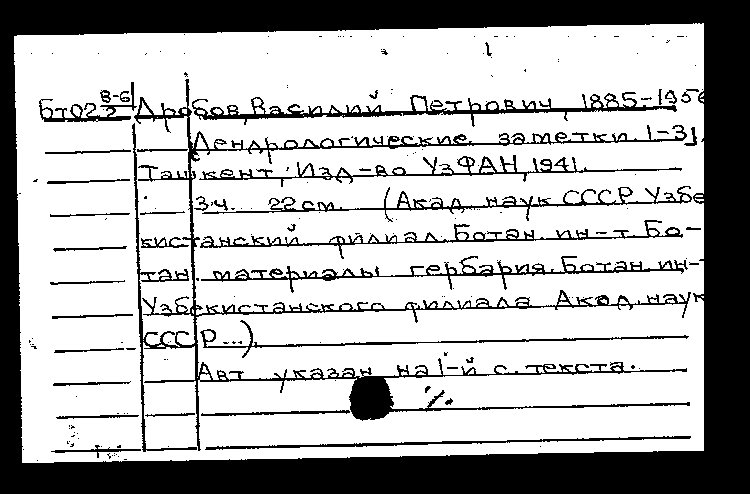 Бт02 В-6/2 Дробов, Василий Петрович, 1885-1956
Дендрологические заметки 1-3.
Ташкент, Изд-во УзФАН, 1941.
3 ч. 22 см. (Акад. наук СССР Узбе
кистанский филиал. Ботан. ин-т. Бо-
тан. материалы гербария. Ботан. ин-т
Узбекистанского филиала Акад. наук
СССР...).
Авт указан на 1-й с. текста.